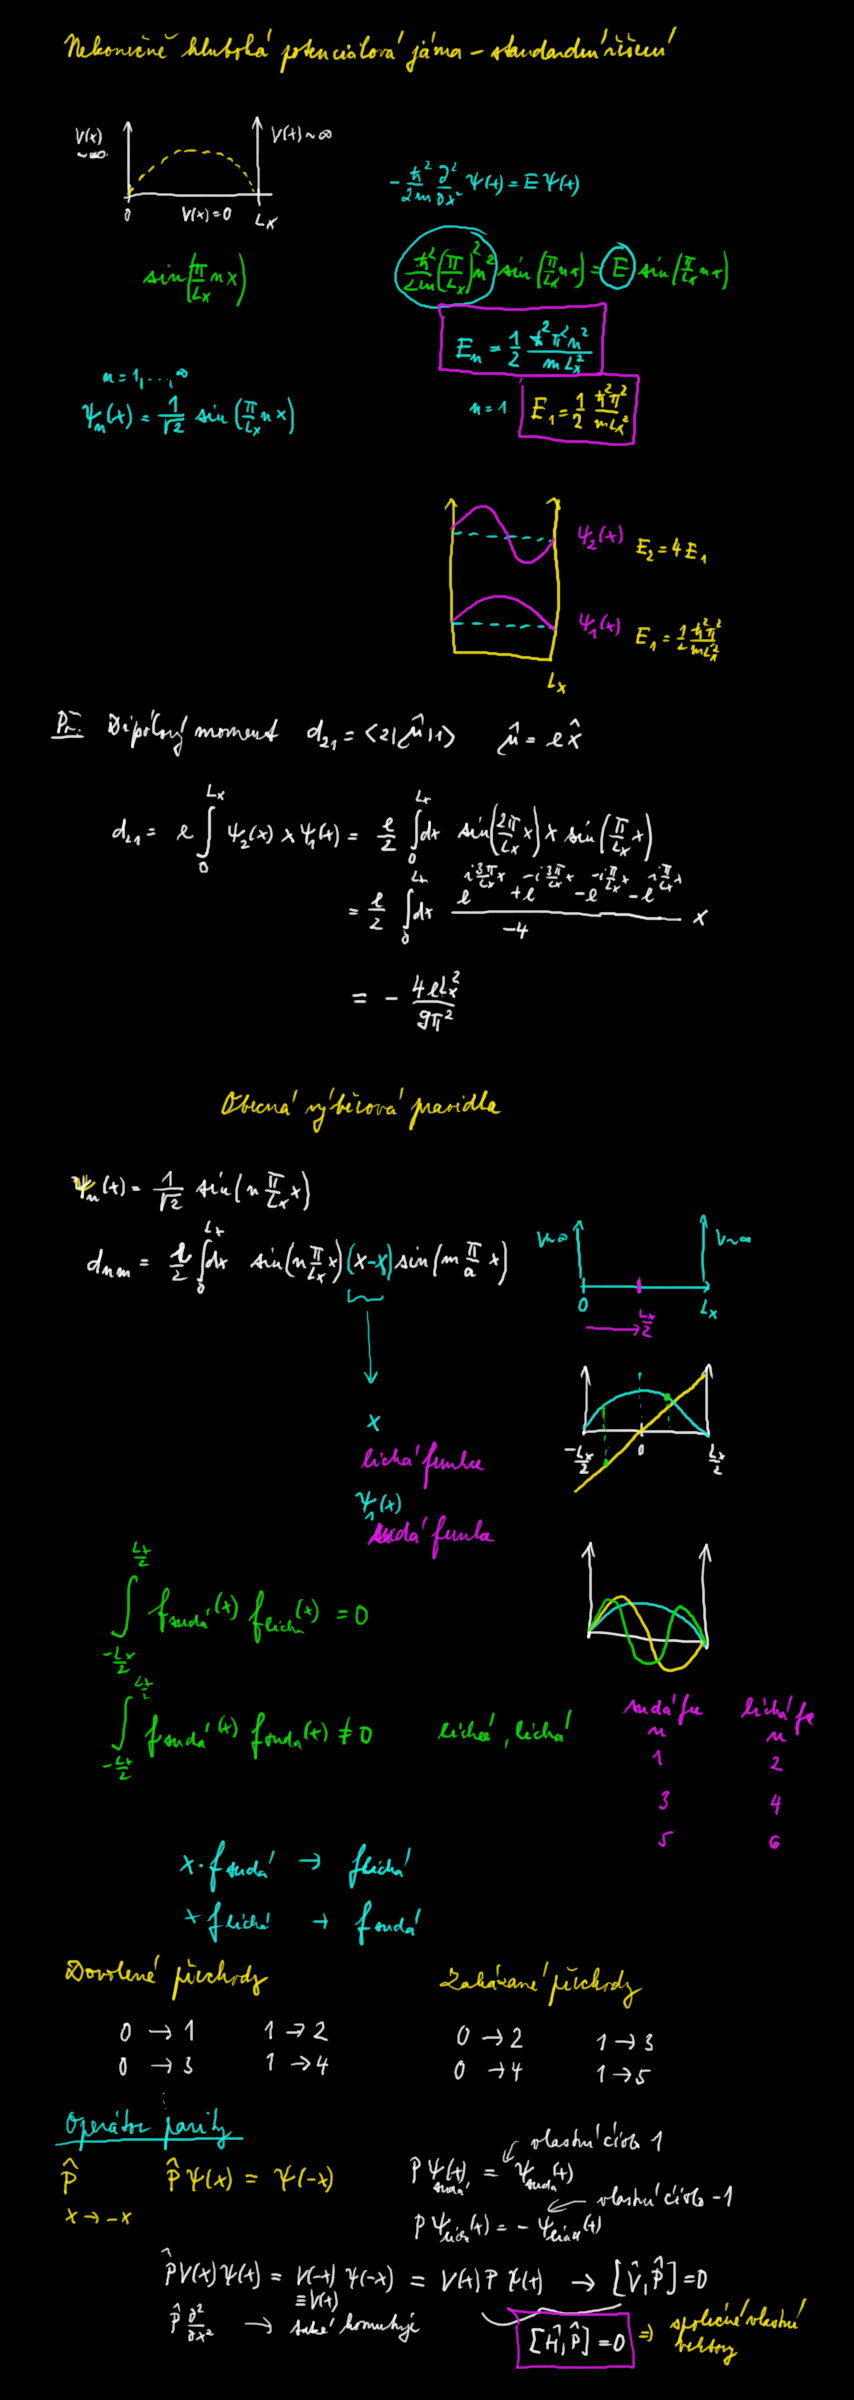 Nekonečně hluboká potenciálová jáma – standardní řešení
V(x) ~∞
V(x)~∞
0 V(x)=0 Lx
-ħ²/2m ∂²/∂x² ψ(x) = E ψ(x)
sin(π/Lx n x)
ħ²/2m (π/Lx)² n² sin(π/Lx n x) = E sin(π/Lx n x)
E_n = 1/2 ħ²π²n²/mLx²
n = 1, ..., ∞
ψ_n(x) = 1/√2 sin(π/Lx n x)
n = 1 E_1 = 1/2 ħ²π²/mLx²
ψ_2(x) E_2 = 4E_1
ψ_1(x) E_1 = 1/2 ħ²π²/mLx²
Lx
Př. Dipólový moment d_21 = <2|μ̂|1> μ̂ = e x̂
d_21 = e ∫_0^Lx ψ_2(x) x ψ_1(x) = e/2 ∫_0^Lx dx sin(2π/Lx x) x sin(π/Lx x)
= e/2 ∫_0^Lx dx (e^{i3π/Lx x} + e^{-i3π/Lx x} - e^{-iπ/Lx x} - e^{iπ/Lx x})/-4 x
= - 4eLx²/9π²
Obecná výběrová pravidla
ψ_n(x) = 1/√2 sin(n π/Lx x)
d_nm = e/2 ∫_0^Lx dx sin(n π/Lx x)(x-x) sin(m π/a x)
V~∞ V~∞
0 Lx/2 Lx
x
lichá funkce
ψ_1(x)
sudá funkce
-Lx/2 0 Lx/2
∫_{-Lx/2}^{Lx/2} f_sudá(x) f_lichá(x) = 0
∫_{-Lx/2}^{Lx/2} f_sudá(x) f_sudá(x) ≠ 0 lichá, lichá
sudá fce lichá fce
n n
1 2
3 4
5 6
x·f_sudá → f_lichá
x f_lichá → f_sudá
Dovolené přechody
0 → 1 1 → 2
0 → 3 1 → 4
Zakázané přechody
0 → 2 1 → 3
0 → 4 1 → 5
Operátor parity
P̂ P̂ψ(x) = ψ(-x)
x → -x
vlastní číslo 1
Pψ_sudá(x) = ψ_sudá(x)
vlastní číslo -1
Pψ_lichá(x) = -ψ_lichá(x)
P̂V(x)ψ(x) = V(-x) ψ(-x) = V(x) P ψ(x) → [V̂,P̂]=0
≡V(x)
P̂ ∂²/∂x² → také komutuje
[Ĥ,P̂]=0 ⇒ společné vlastní vektory